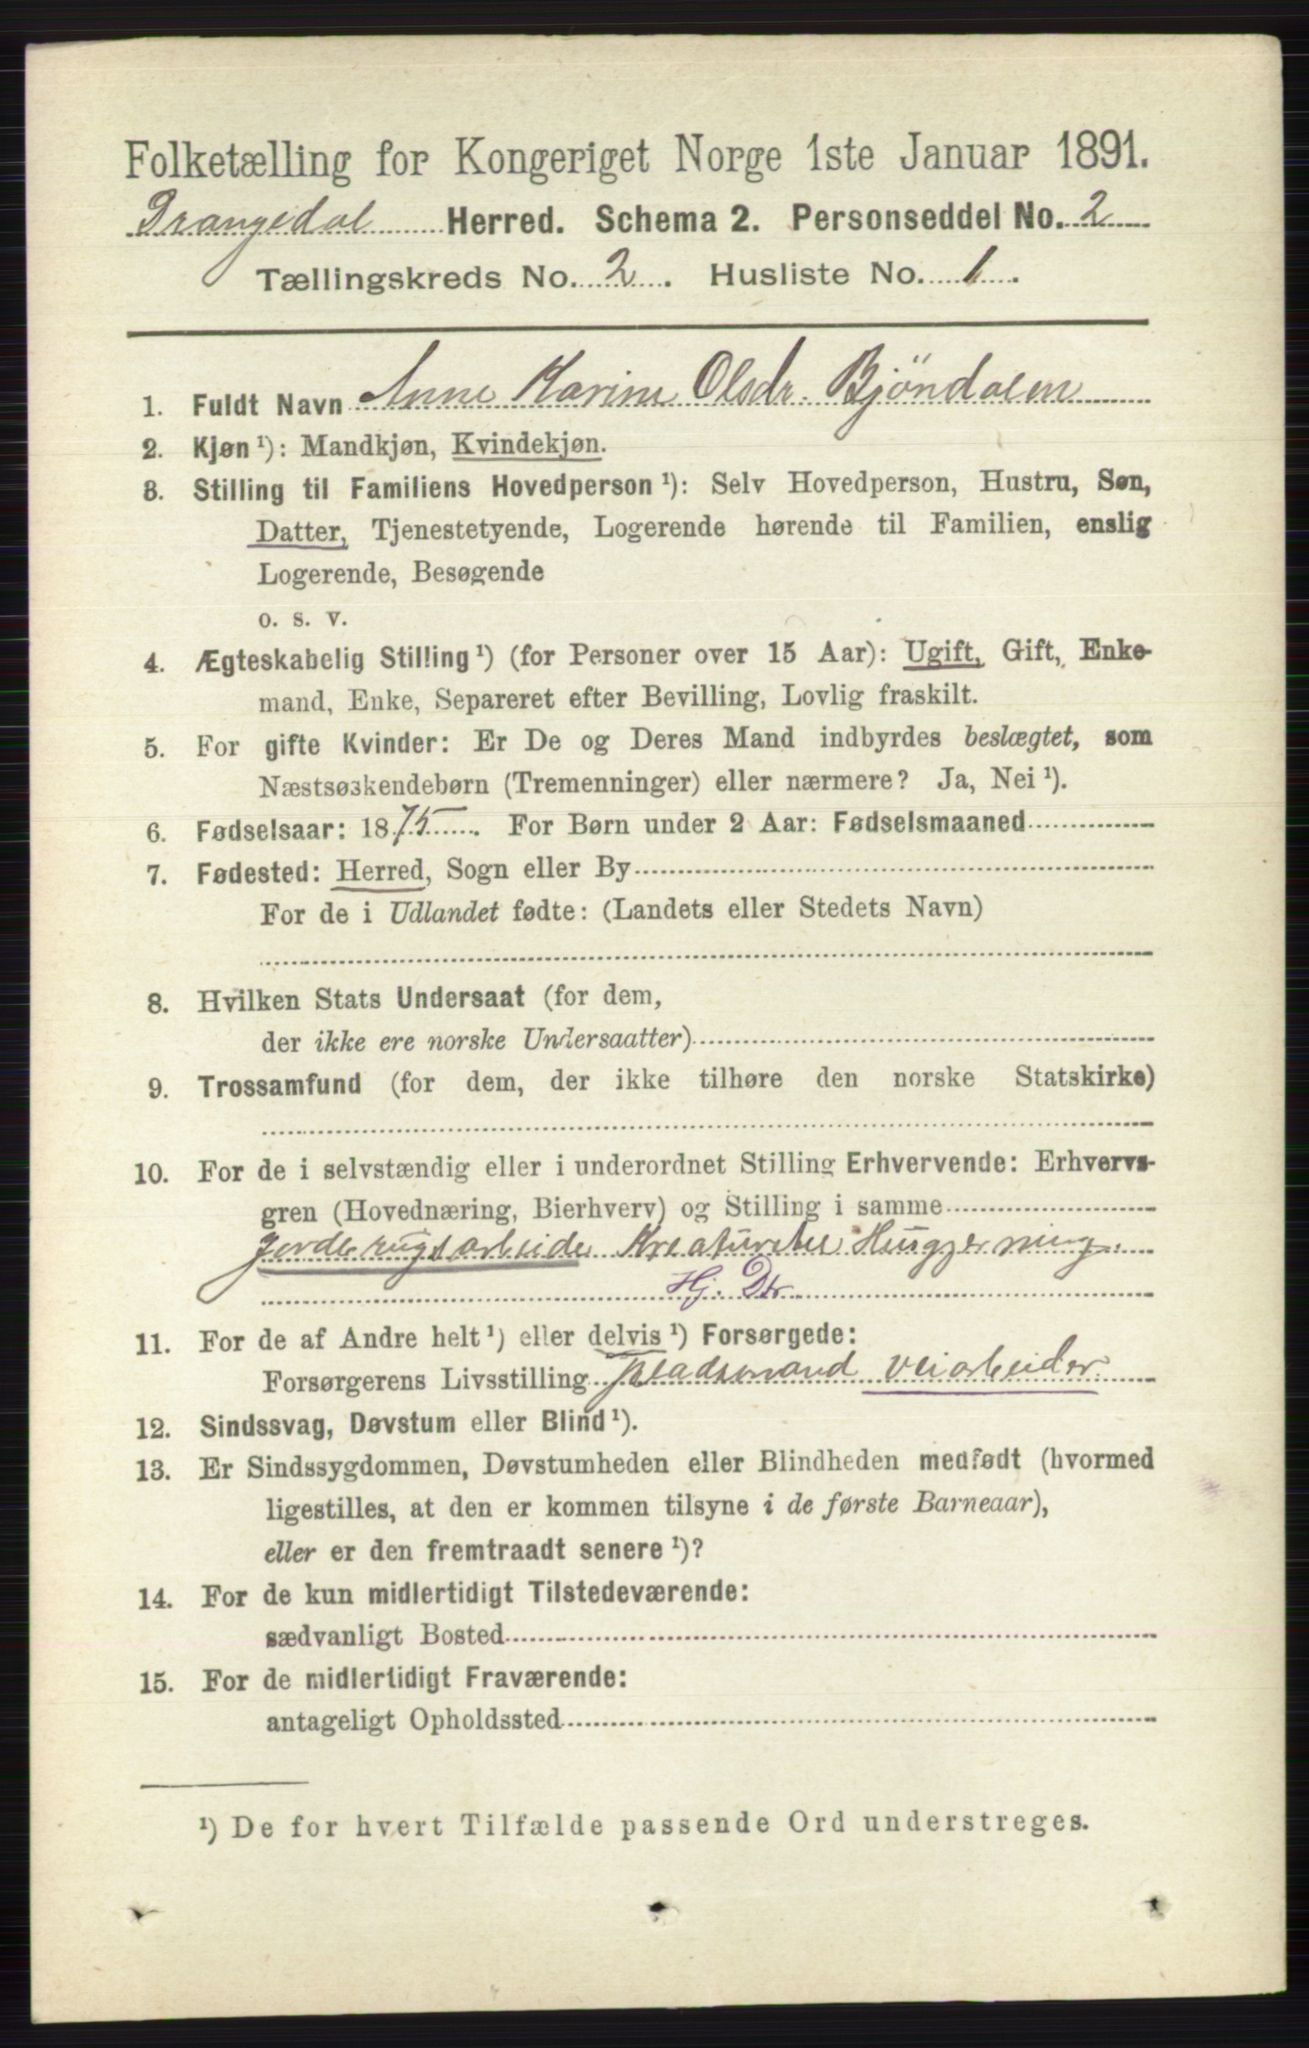 Folketælling for Kongeriget Norge 1ste Januar 1891.
Drangedal Herred. Schema 2. Personseddel No. 2
Tællingskreds No. 2. Husliste No. 1.
1. Fuldt Navn Anne Karine Olsdr. Bjöndalen
2. Kjøn¹): Mandkjøn, Kvindekjøn.
3. Stilling til Familiens Hovedperson¹): Selv Hovedperson, Hustru, Søn,
Datter, Tjenestetyende, Logerende hørende til Familien, enslig
Logerende, Besøgende
o. s. v.
4. Ægteskabelig Stilling¹) (for Personer over 15 Aar): Ugift, Gift, Enke-
mand, Enke, Separeret efter Bevilling, Lovlig fraskilt.
5. For gifte Kvinder: Er De og Deres Mand indbyrdes beslægtet, som
Næstsøskendebørn (Tremenninger) eller nærmere? Ja, Nei¹).
6. Fødselsaar: 1875. For Børn under 2 Aar: Fødselsmaaned
7. Fødested: Herred, Sogn eller By
For de i Udlandet fødte: (Landets eller Stedets Navn)
8. Hvilken Stats Undersaat (for dem,
der ikke ere norske Undersaatter)
9. Trossamfund (for dem, der ikke tilhøre den norske Statskirke)
10. For de i selvstændig eller i underordnet Stilling Erhvervende: Erhvervs-
gren (Hovednæring, Bierhverv) og Stilling i samme
Husgjerning.
Hj. Dtr
11. For de af Andre helt¹) eller delvis¹) Forsørgede:
Forsørgerens Livsstilling Pladsmand veiarbeider.
12. Sindssvag, Døvstum eller Blind¹).
13. Er Sindssygdommen, Døvstumheden eller Blindheden medfødt (hvormed
ligestilles, at den er kommen tilsyne i de første Barneaar),
eller er den fremtraadt senere¹)?
14. For de kun midlertidigt Tilstedeværende:
sædvanligt Bosted
15. For de midlertidigt Fraværende:
antageligt Opholdssted
¹) De for hvert Tilfælde passende Ord understreges.